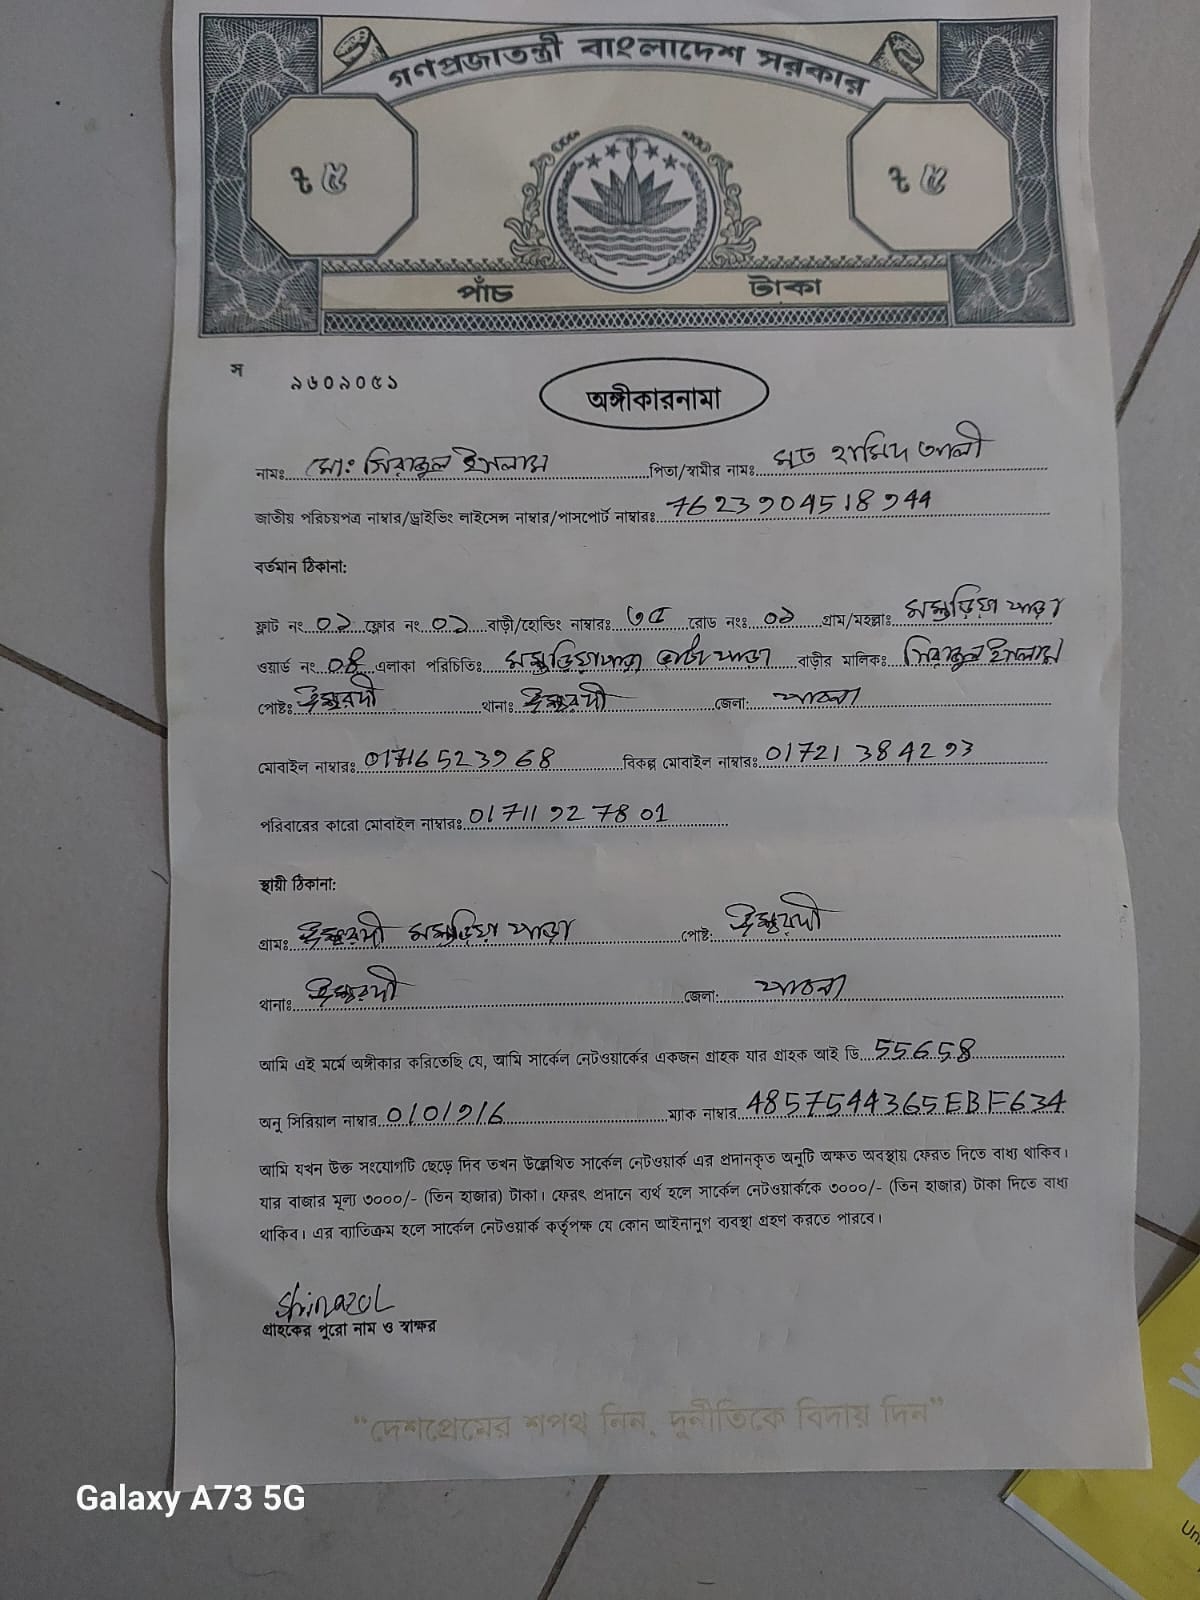 গণপ্রজাতন্ত্রী বাংলাদেশ সরকার
ট ৫ ট ৫
পাঁচ টাকা
স ৯৬০৯০৫৯
অঙ্গীকারনামা
নামঃ মোঃ সিরাজুল ইসলাম পিতা/স্বামীর নামঃ মৃত হামিদ আলী
জাতীয় পরিচয়পত্র নাম্বার/ড্রাইভিং লাইসেন্স নাম্বার/পাসপোর্ট নাম্বারঃ 7623904518944
বর্তমান ঠিকানা:
ফ্লাট নং ০১ ফ্লোর নং ০১ বাড়ী/হোল্ডিং নাম্বারঃ ৩৫ রোড নংঃ ০১ গ্রাম/মহল্লাঃ মশুড়িয়া পাড়া
ওয়ার্ড নং 08 এলাকা পরিচিতিঃ মশুড়িয়াপাড়া পাড়া বাড়ীর মালিকঃ সিরাজুল ইসলাম
পোষ্টঃ ঈশ্বরদী থানাঃ ঈশ্বরদী জেলা: পাবনা
মোবাইল নাম্বারঃ 01716523968 বিকল্প মোবাইল নাম্বারঃ 01721 384293
পরিবারের কারো মোবাইল নাম্বারঃ 01711 927801
স্থায়ী ঠিকানা:
গ্রামঃ ঈশ্বরদী মশুড়িয়া পাড়া পোষ্ট: ঈশ্বরদী
থানাঃ ঈশ্বরদী জেলা: পাবনা
আমি এই মর্মে অঙ্গীকার করিতেছি যে, আমি সার্কেল নেটওয়ার্কের একজন গ্রাহক যার গ্রাহক আই ডি 55658
অনু সিরিয়াল নাম্বার 0101916 ম্যাক নাম্বার 4857544365EBF634
আমি যখন উক্ত সংযোগটি ছেড়ে দিব তখন উল্লেখিত সার্কেল নেটওয়ার্ক এর প্রদানকৃত অনুটি অক্ষত অবস্থায় ফেরত দিতে বাধ্য থাকিব।
যার বাজার মূল্য ৩০০০/- (তিন হাজার) টাকা। ফেরৎ প্রদানে ব্যর্থ হলে সার্কেল নেটওয়ার্ককে ৩০০০/- (তিন হাজার) টাকা দিতে বাধ্য
থাকিব। এর ব্যাতিক্রম হলে সার্কেল নেটওয়ার্ক কর্তৃপক্ষ যে কোন আইনানুগ ব্যবস্থা গ্রহণ করতে পারবে।
Shirazol
গ্রাহকের পুরো নাম ও স্বাক্ষর
"দেশপ্রেমের শপথ নিন, দুর্নীতিকে বিদায় দিন"
Galaxy A73 5G